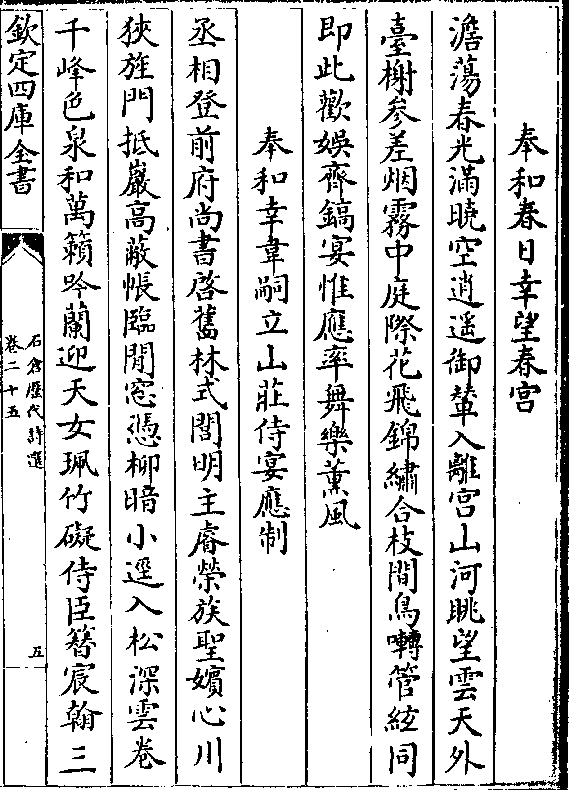 奉和春日幸望春宮
澹蕩春光滿曉空逍遥御輦入離宮山河眺望雲天外
臺榭參差烟霧中庭際花飛錦繡合枝間鳥囀管絃同
即此歡娛齊鎬宴惟應率舞樂薰風
奉和幸韋嗣立山莊侍宴應制
丞相登前府尚書啓舊林式閭明主睿榮族聖嬪心川
狹旌門抵巖高蔽帳臨閒窓憑柳暗小逕入松深雲卷
千峰色泉和萬籟吟蘭迎天女珮竹礙侍臣簪宸翰三
欽定四庫全書
石倉歷代詩選
卷二十五
五